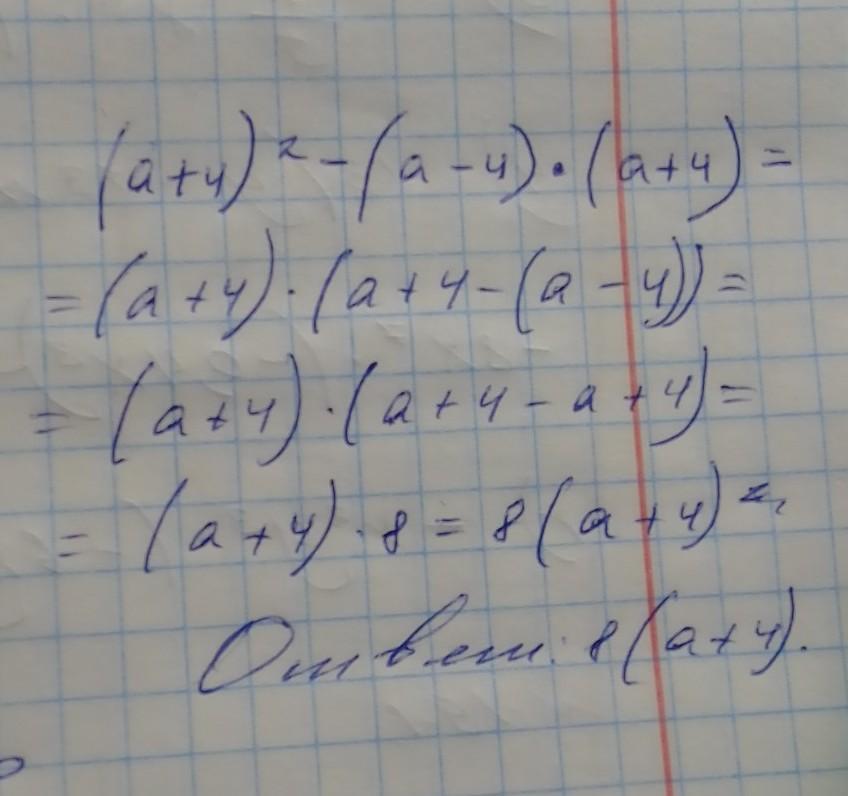 (a+4)² - (a-4)·(a+4) =
= (a+4)·(a+4-(a-4)) =
= (a+4)·(a+4-a+4) =
= (a+4)·8 = 8(a+4)²,
Ответ: 8(a+4).